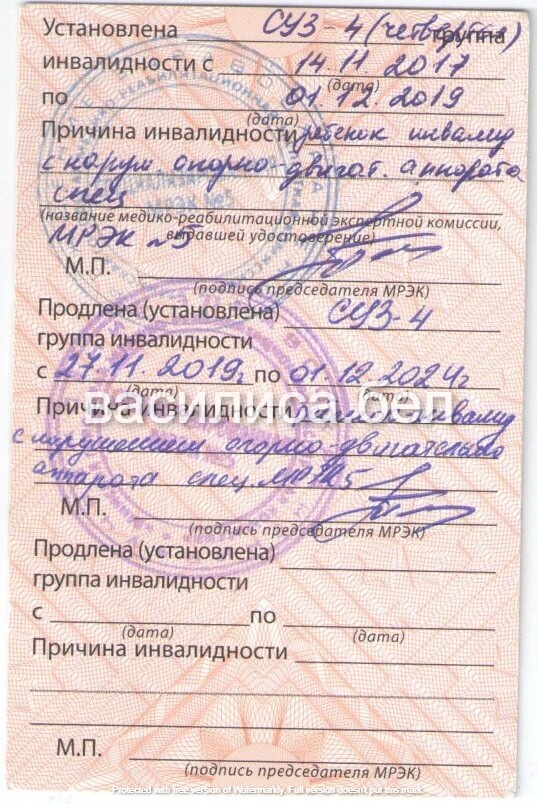 Установлена СУЗ-4 (четвертая) группа
инвалидности с 14.11.2017
(дата)
по 01.12.2019
(дата)
Причина инвалидности ребенок инвалид
с наруш. опорно-двигат. аппарата
спец
(название медико-реабилитационной экспертной комиссии,
МРЭК №5 выдавшей удостоверение)
М.П.
(подпись председателя МРЭК)
Продлена (установлена) СУЗ-4
группа инвалидности
с 27.11.2019г по 01.12.2024г
(дата) (дата)
василиса.бел
Причина инвалидности инвалид
с нарушением опорно-двигательного
аппарата спец. МРЭК5
М.П.
(подпись председателя МРЭК)
Продлена (установлена)
группа инвалидности
с по
(дата) (дата)
Причина инвалидности
М.П.
(подпись председателя МРЭК)
Protected with free version of Watermarkly. Full version doesn't put this mark.